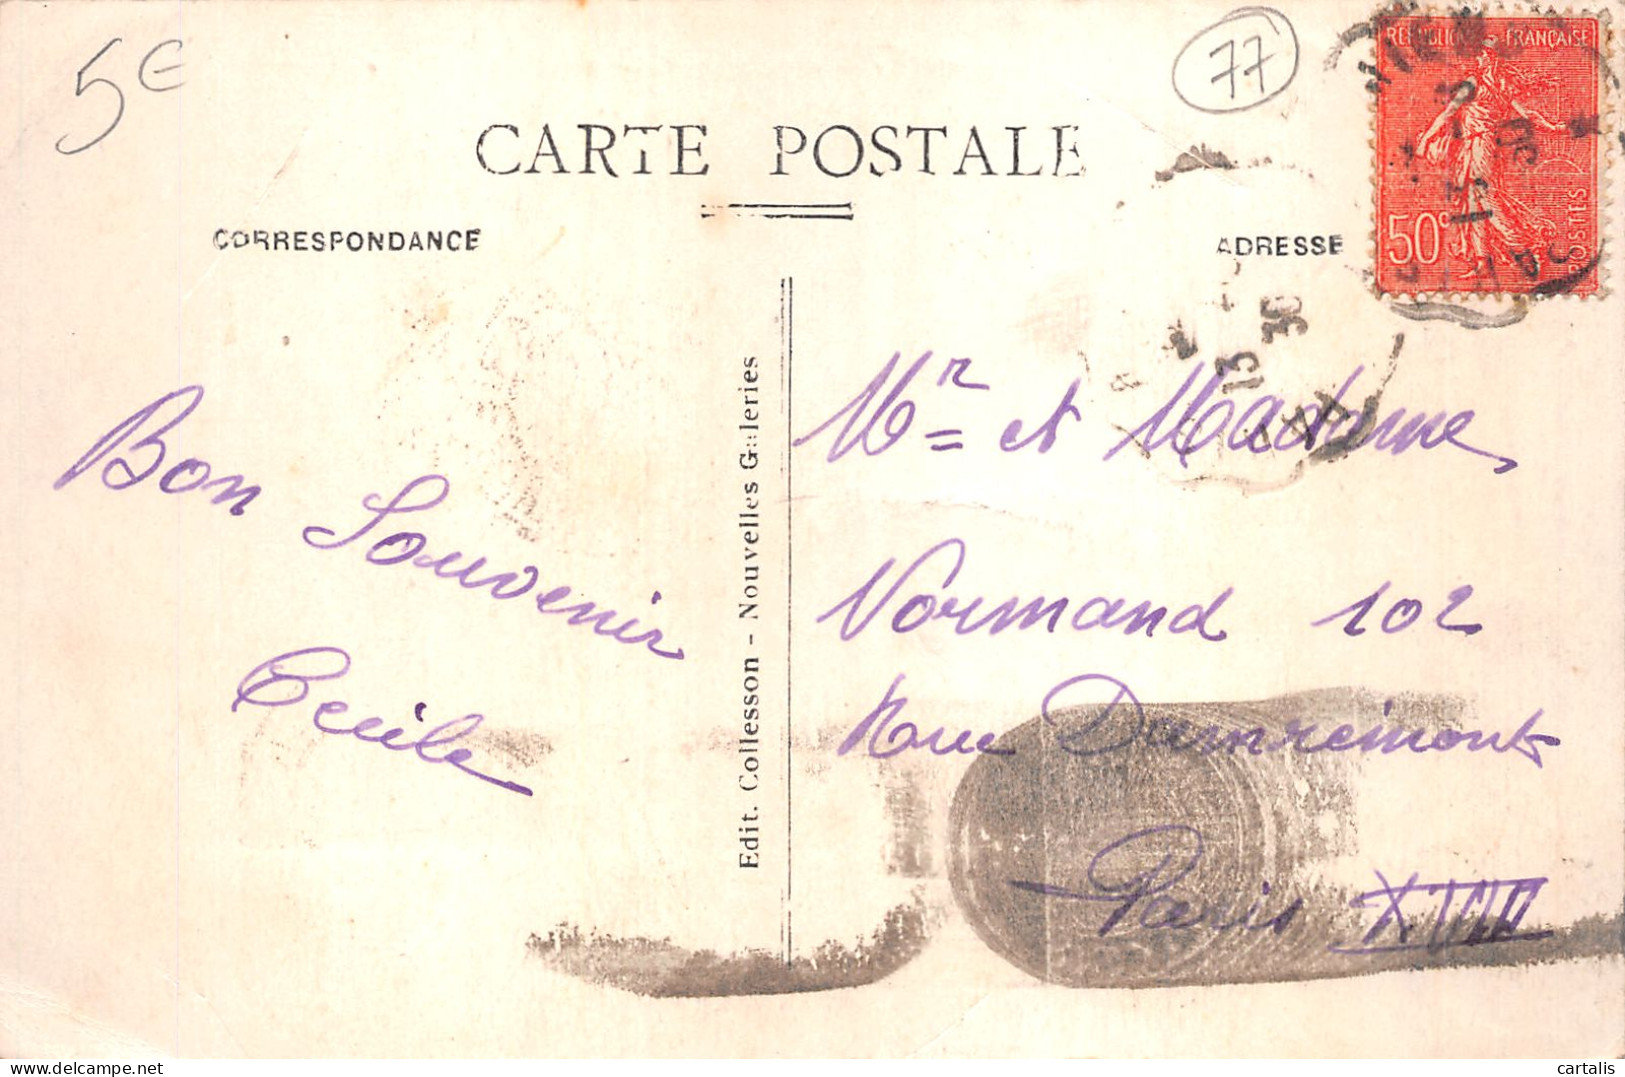 5€
77
REPUBLIQUE FRANÇAISE
50c
POSTES
CARTE POSTALE
CORRESPONDANCE
ADRESSE
Bon Souvenir
Cecile
Edit. Collesson - Nouvelles Galeries
Mr et Madame
Normand 102
Rue Damremont
Paris XVIII
cartalis